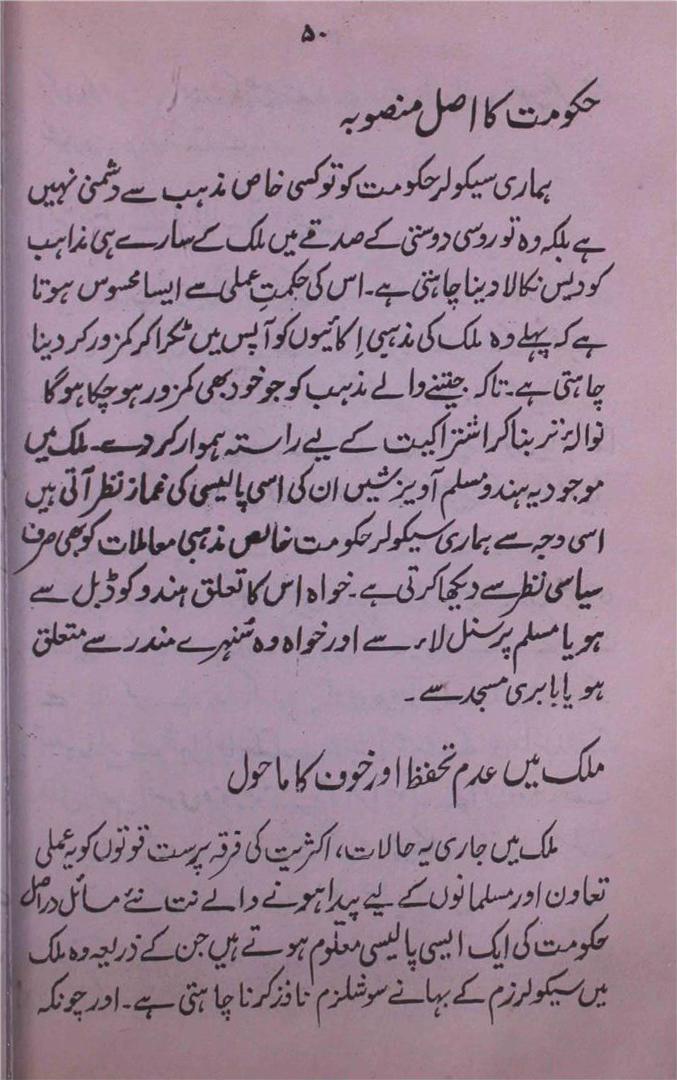 ۵۰
حکومت کا اصل منصوبہ
ہماری سیکولر حکومت کو تو کسی خاص مذہب سے دشمنی نہیں
ہے بلکہ وہ تو روسی دوستی کے صدقے میں ملک کے سارے ہی مذاہب
کو دیس نکالا دینا چاہتی ہے۔ اس کی حکمتِ عملی سے ایسا محسوس ہوتا
ہے کہ پہلے وہ ملک کی مذہبی اِکائیوں کو آپس میں ٹکرا کر کمزور کر دینا
چاہتی ہے۔ تاکہ جیتنے والے مذہب کو جو خود بھی کمزور ہو چکا ہوگا
نوالۂ تر بنا کر اشتراکیت کے لیے راستہ ہموار کر دے۔ ملک میں
موجود یہ ہندو مسلم آویزشیں ان کی اسی پالیسی کی غماز نظر آتی ہیں
اسی وجہ سے ہماری سیکولر حکومت خالص مذہبی معاملات کو بھی صرف
سیاسی نظر سے دیکھا کرتی ہے۔ خواہ اس کا تعلق ہندو کوڈ بل سے
ہو یا مسلم پرسنل لاء سے اور خواہ وہ سُنہرے مندر سے متعلق
ہو یا بابری مسجد سے۔
ملک میں عدم تحفظ اور خوف کا ماحول
ملک میں جاری یہ حالات، اکثریت کی فرقہ پرست قوتوں کو یہ عملی
تعاون اور مسلمانوں کے لیے پیدا ہونے والے نت نئے مسائل دراصل
حکومت کی ایک ایسی پالیسی معلوم ہوتے ہیں جن کے ذریعہ وہ ملک
میں سیکولرزم کے بہانے سوشلزم نافذ کرنا چاہتی ہے۔ اور چونکہ